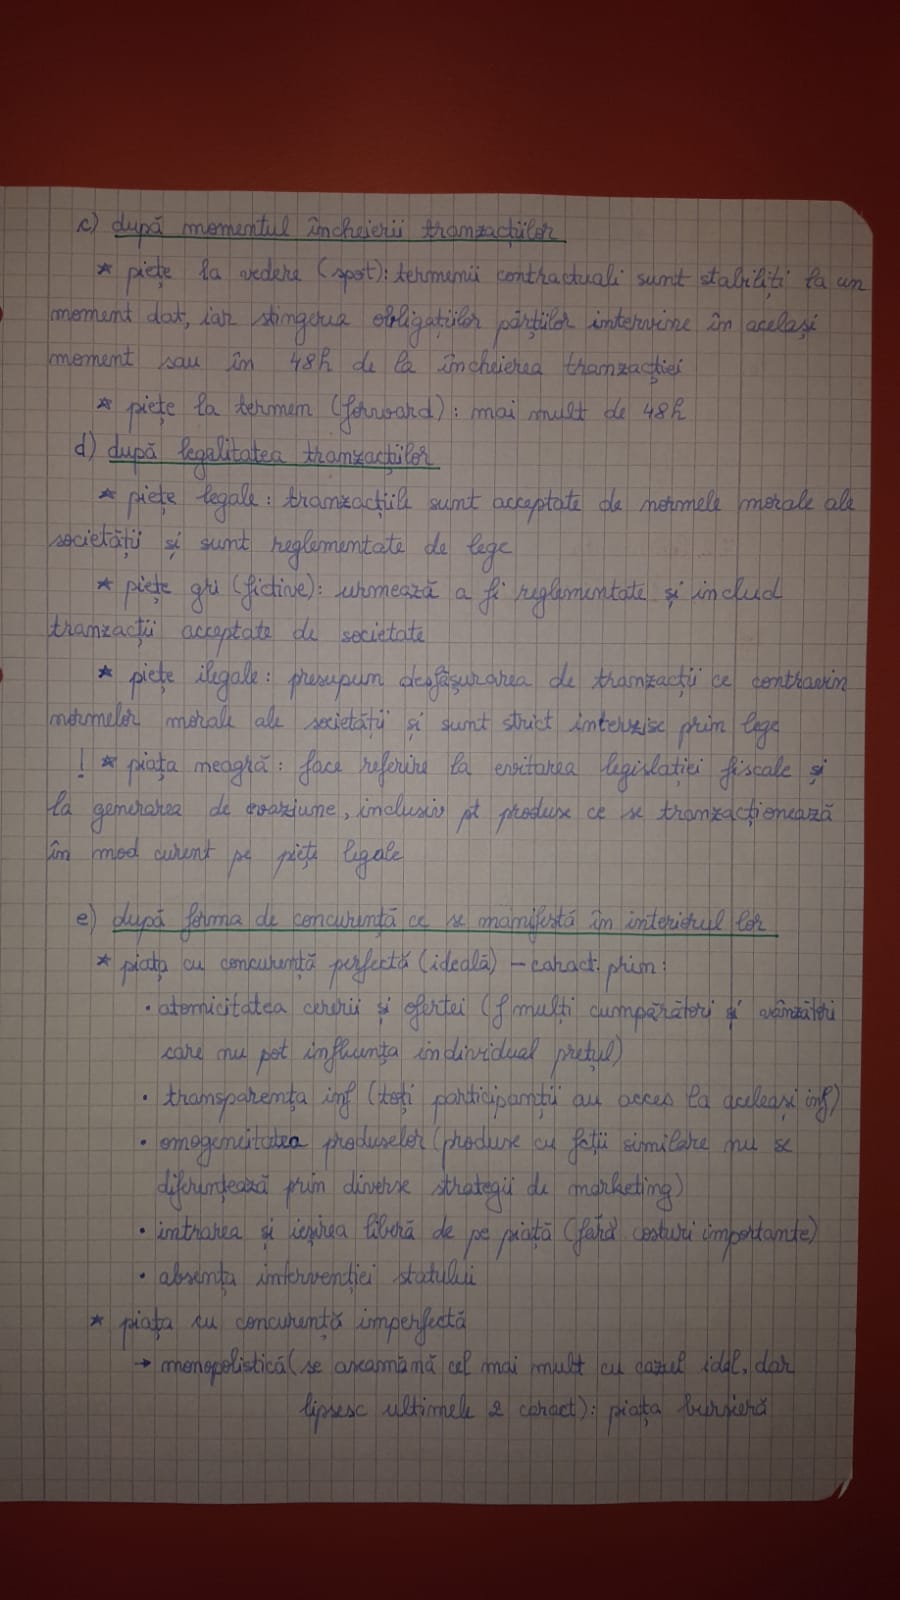 c) după momentul încheierii tranzacțiilor
* piețe la vedere (spot): termenii contractuali sunt stabiliți la un
moment dat, iar stingerea obligațiilor părților intervine în același
moment sau în 48h de la încheierea tranzacției
* piețe la termen (forward): mai mult de 48h
d) după legalitatea tranzacțiilor
* piețe legale: tranzacțiile sunt acceptate de normele morale ale
societății și sunt reglementate de lege
* piețe gri (fictive): urmează a fi reglementate și includ
tranzacții acceptate de societate
* piețe ilegale: presupun desfășurarea de tranzacții ce contravin
normelor morale ale societății și sunt strict interzise prin lege
! * piața neagră: face referire la evitarea legislației fiscale și
la generarea de evaziune, inclusiv pt produse ce se tranzacționează
în mod curent pe piețe legale
e) după forma de concurență ce se manifestă în interiorul lor
* piața cu concurență perfectă (ideală) – caract. prin:
• atomicitatea cererii și ofertei (f mulți cumpărători și vânzători
care nu pot influența individual prețul)
• transparența inf (toți participanții au acces la aceleași inf)
• omogenitatea produselor (produse cu fcții similare nu se
diferențează prin diverse strategii de marketing)
• intrarea și ieșirea liberă de pe piață (fără costuri importante)
• absența intervenției statului
* piața cu concurență imperfectă
→ monopolistică (se aseamănă cel mai mult cu cazul idel, dar
lipsesc ultimele 2 caract): piața